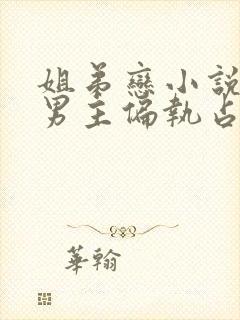 姐弟戀小說
男主偏執占
華翰